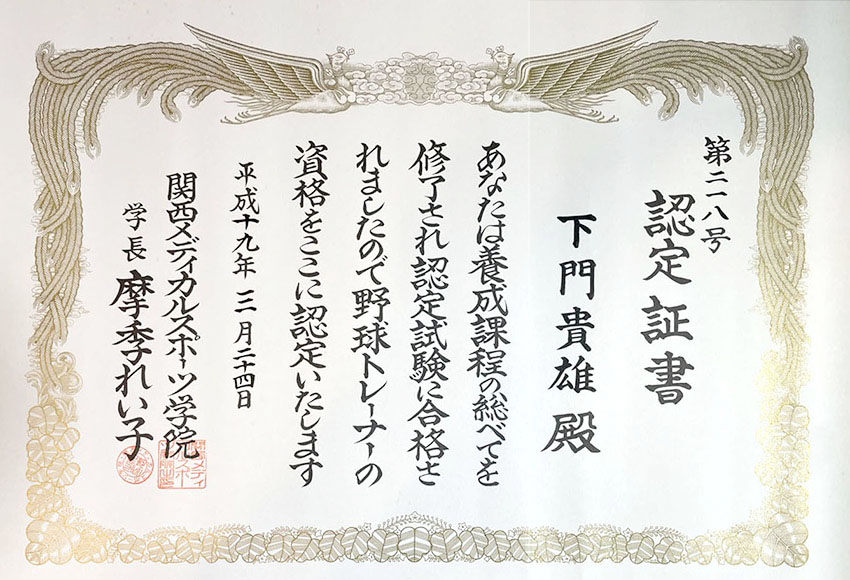 第二一八号
認定証書
下門貴雄殿
あなたは養成課程の総べてを
修了され認定試験に合格さ
れましたので野球トレーナーの
資格をここに認定いたします
平成十九年三月二十四日
関西メディカルスポーツ学院
学長 摩季れい子